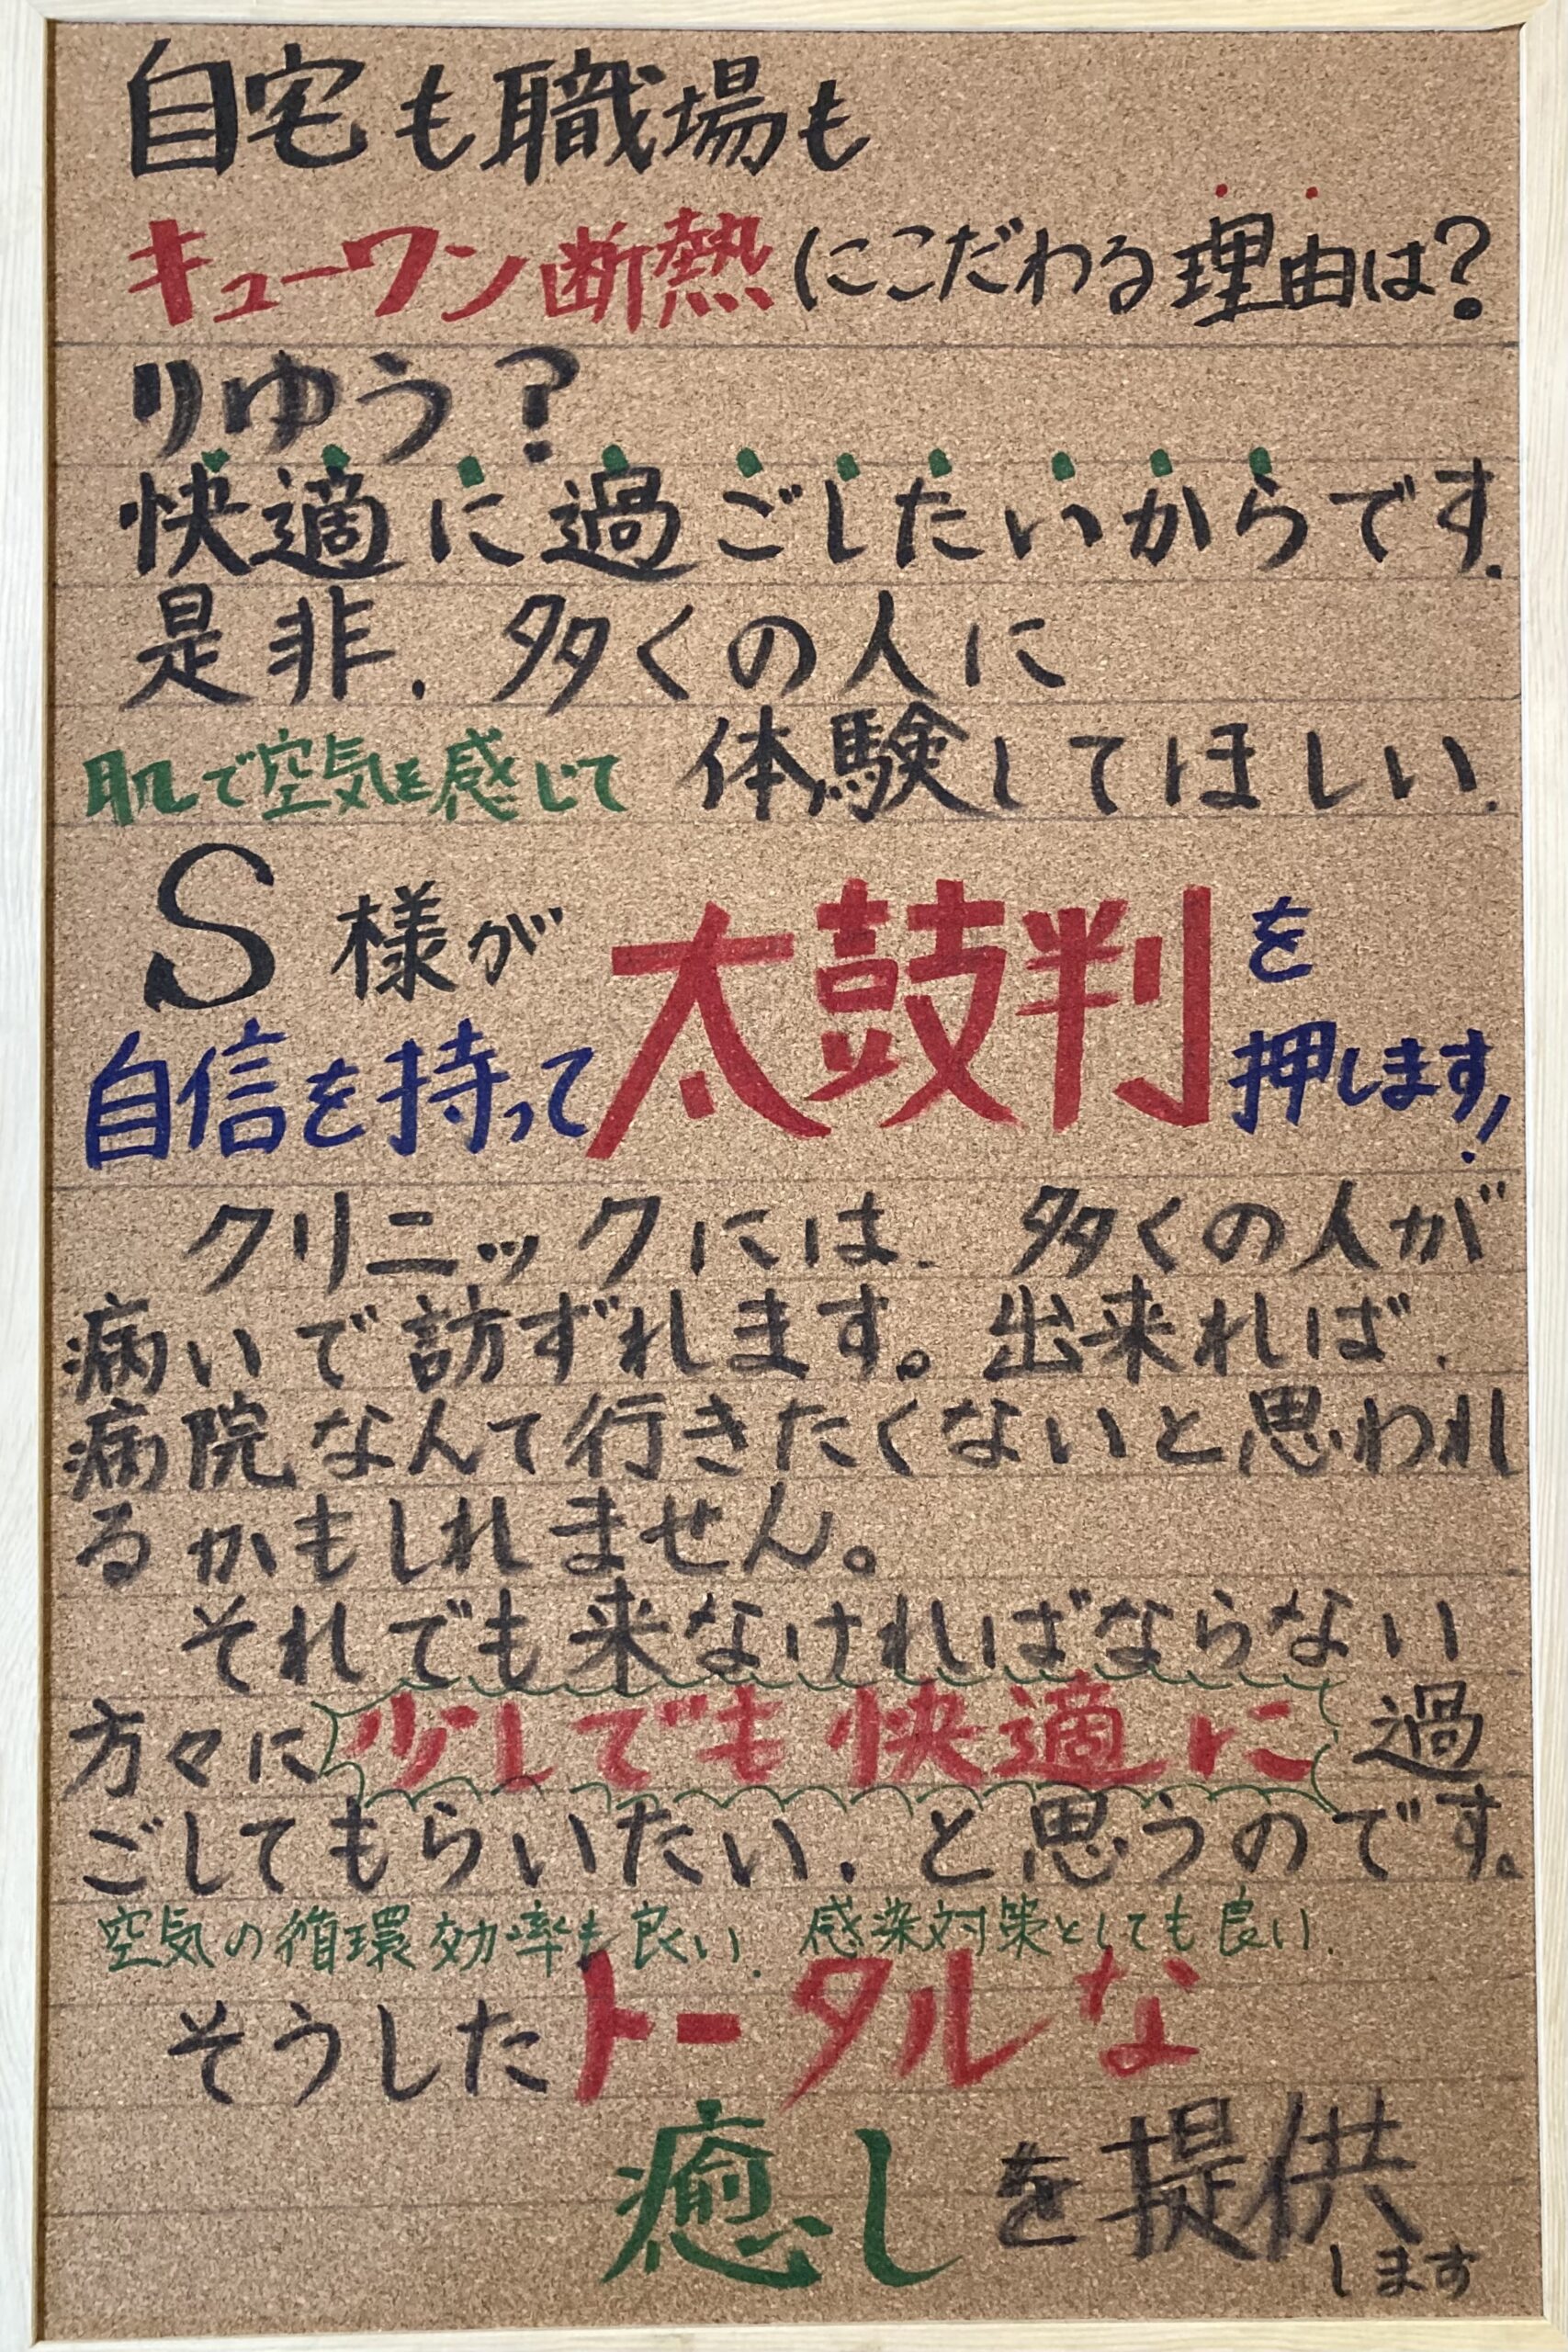 自宅も職場も
キューワン断熱にこだわる理由は?
りゆう?
快適に過ごしたいからです.
是非.多くの人に
肌で空気を感じて 体験してほしい.
S様が太鼓判を
自信を持って押します!
クリニックには.多くの人が
病いで訪ずれます。出来れば.
病院なんて行きたくないと思われ
るかもしれません。
それでも来なければならない
方々に少しでも快適に過
ごしてもらいたい.と思うのです。
空気の循環効率も良い. 感染対策としても良い.
そうしたトータルな
癒しを提供
します